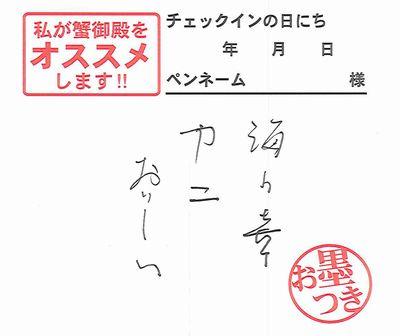 私が蟹御殿を
オススメ
します!!
チェックインの日にち
年 月 日
ペンネーム 様
海の幸
カニ
おいしい
お墨つき